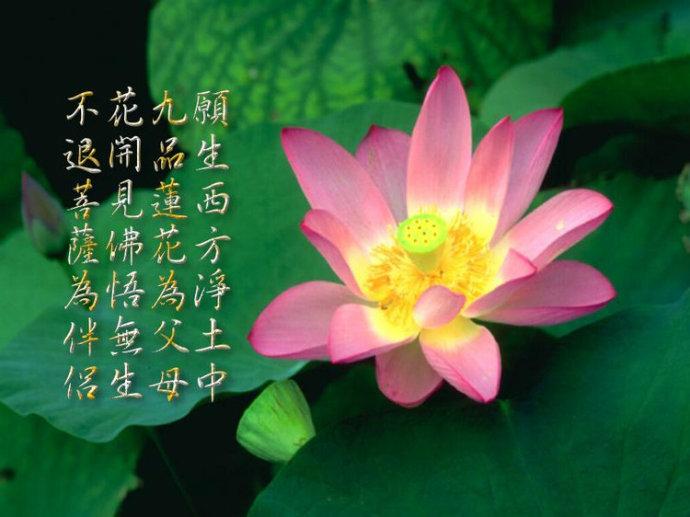 願生西方淨土中
九品蓮花為父母
花開見佛悟無生
不退菩薩為伴侶